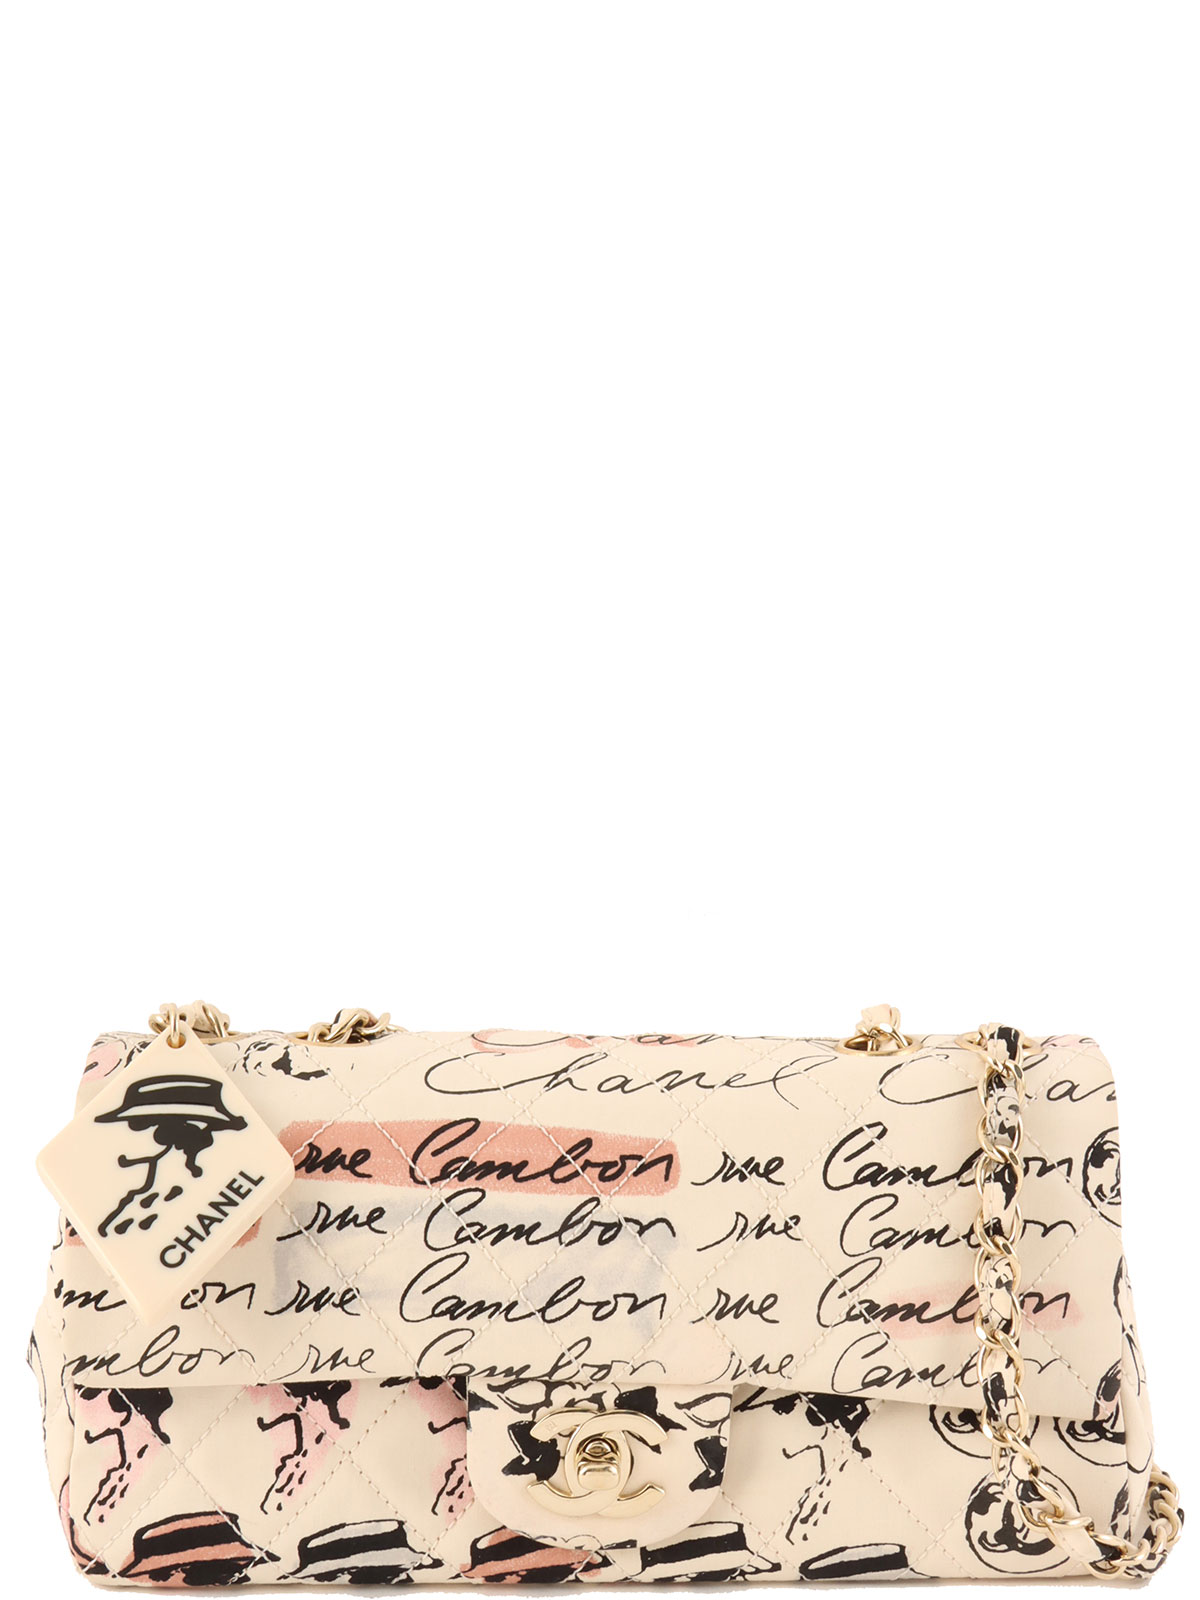 Chanel
Chanel Cha
rue Cambon rue Cambon
rue Cambon rue Cambon
mbon rue Cambon rue Cambon
mbon rue Cambon rue Cambon
CHANEL